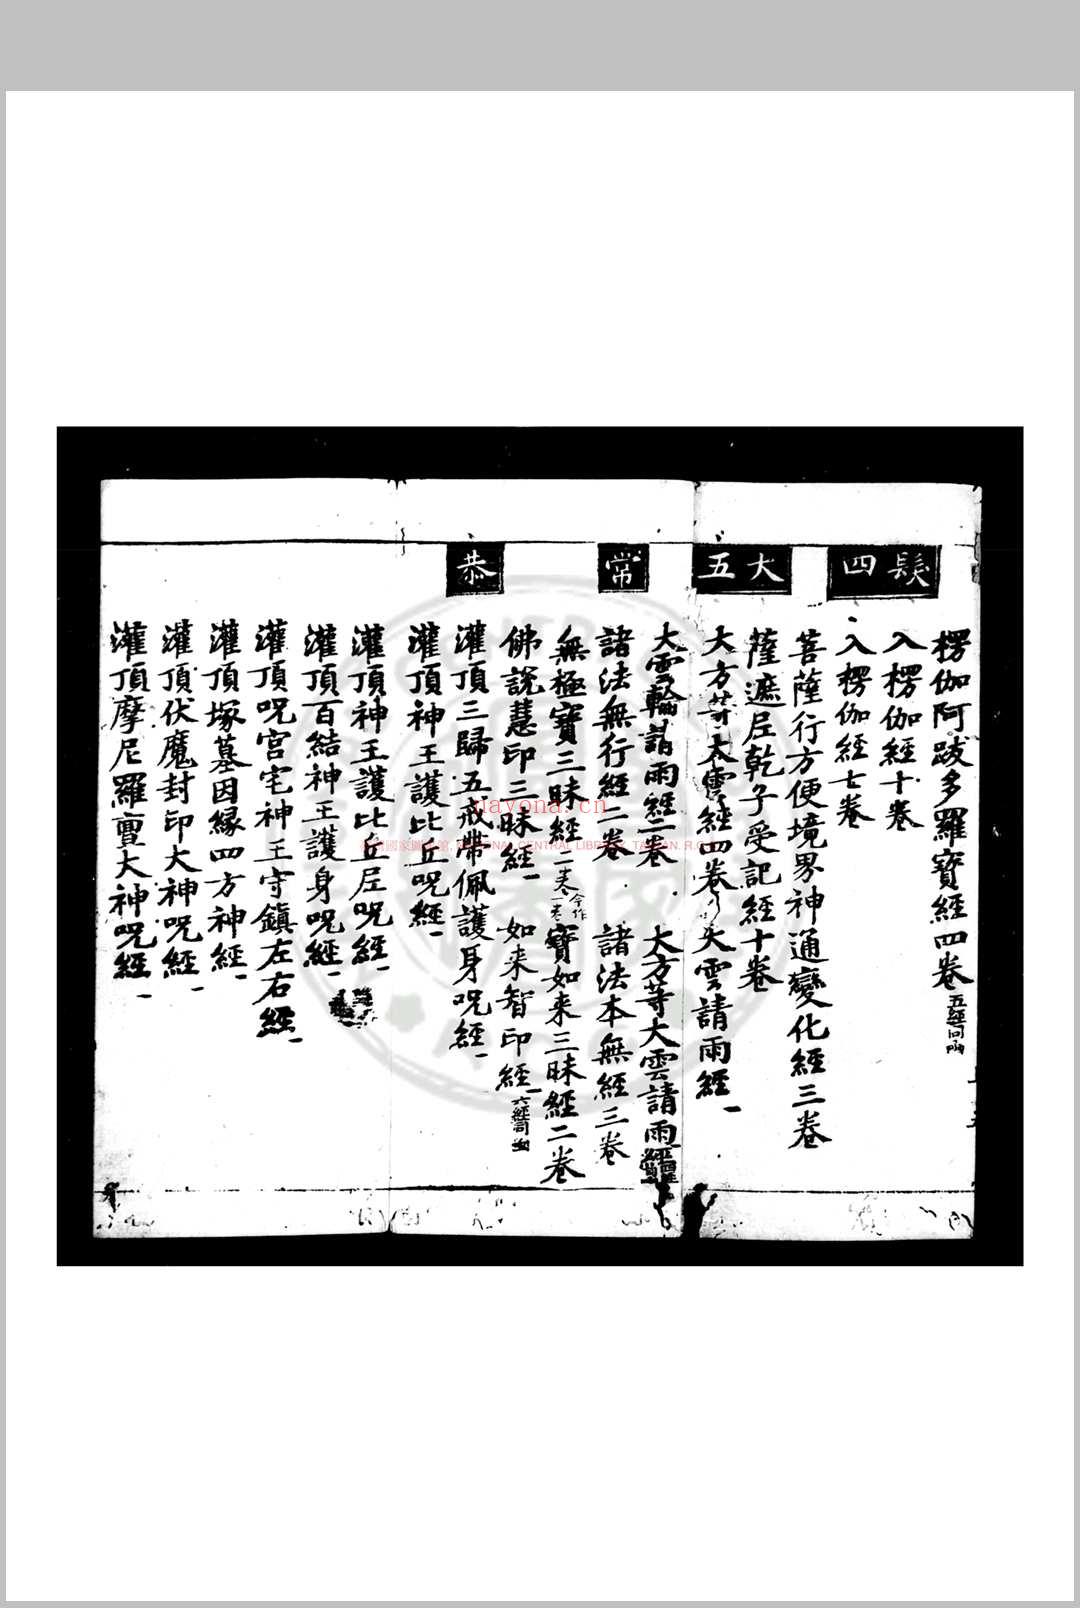 楞伽阿跋多羅寶經四卷 五經同函
入楞伽經十卷
髮四
入楞伽經七卷
菩薩行方便境界神通變化經三卷
大五
薩遮尼乾子受記經十卷
大方等大雲經四卷 大雲請雨經一
大雲輪請雨經二卷 大方等大雲請雨經
常
諸法無行經二卷 諸法本無經三卷
無極寶三昧經 二卷今作一卷 寶如来三昧經二卷
佛說慧印三昧經一 如来智印經一 六經同函
恭
灌頂三歸五戒帶佩護身呪經一
灌頂神王護比丘呪經一
灌頂神王護比丘尼呪經一
灌頂百結神王護身呪經一
灌頂呪宮宅神王守鎮左右經一
灌頂塚墓因緣四方神經一
灌頂伏魔封印大神呪經一
灌頂摩尼羅亶大神呪經一
nayona.cn
國家圖書館, NATIONAL CENTRAL LIBRARY, TAIWAN, R.O.C